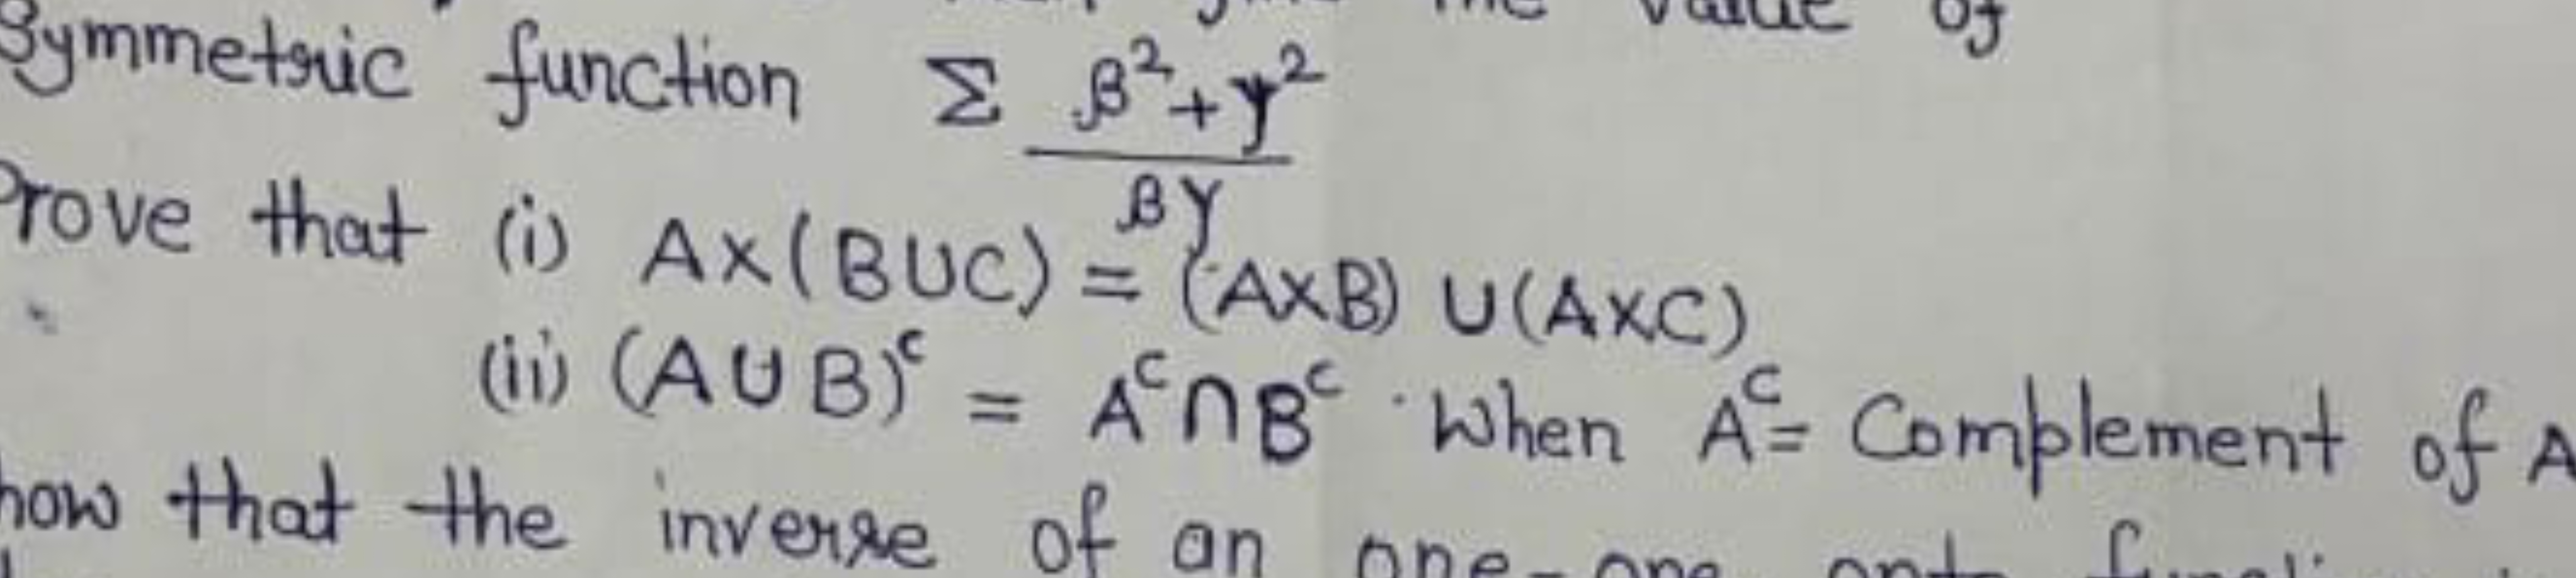 the value of
Symmetric function Σ β²+γ² / βγ
Prove that (i) A×(B∪C) = (A×B) ∪ (A×C)
(ii) (A∪B)ᶜ = Aᶜ∩Bᶜ. When Aᶜ= Complement of A
how that the inverse of an one-one onto